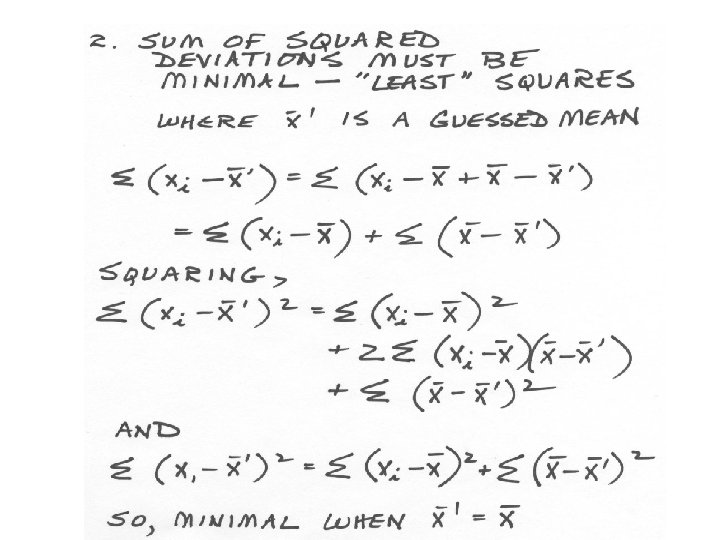 2. SUM OF SQUARED
DEVIATIONS MUST BE
MINIMAL — "LEAST" SQUARES
WHERE x̄' IS A GUESSED MEAN
Σ (xᵢ − x̄') = Σ (xᵢ − x̄ + x̄ − x̄')
= Σ (xᵢ − x̄) + Σ (x̄ − x̄')
SQUARING,
Σ (xᵢ − x̄')² = Σ (xᵢ − x̄)²
+ 2Σ (xᵢ − x̄)(x̄ − x̄')
+ Σ (x̄ − x̄')²
AND
Σ (x, − x̄')² = Σ (xᵢ − x̄)² + Σ (x̄ − x̄')²
SO, MINIMAL WHEN x̄' = x̄